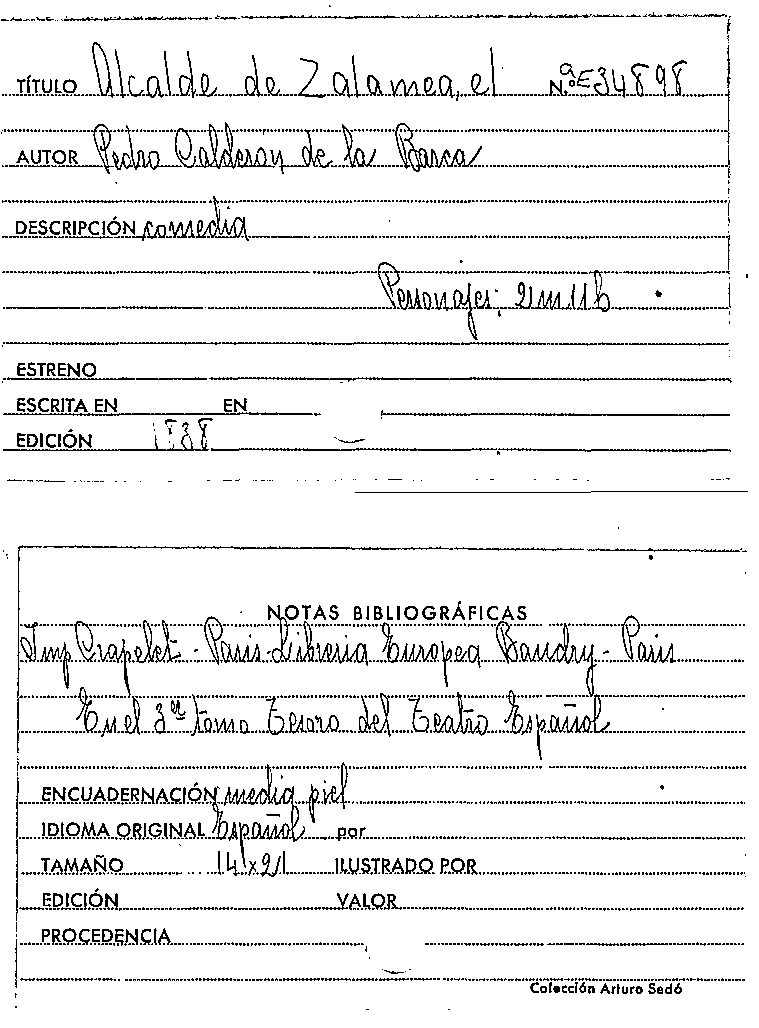 TÍTULO Alcalde de Zalamea, el N.º E34898
AUTOR Pedro Calderón de la Barca
DESCRIPCIÓN comedia
Personajes: 21m 11b
ESTRENO
ESCRITA EN EN
EDICIÓN 1838
NOTAS BIBLIOGRÁFICAS
Imp Crapelet - Paris - Libreria Europea Baudry - Paris
En el 3er tomo Tesoro del Teatro Español
ENCUADERNACIÓN media piel
IDIOMA ORIGINAL Español por
TAMAÑO 14x21 ILUSTRADO POR
EDICIÓN VALOR
PROCEDENCIA
Colección Arturo Sedó